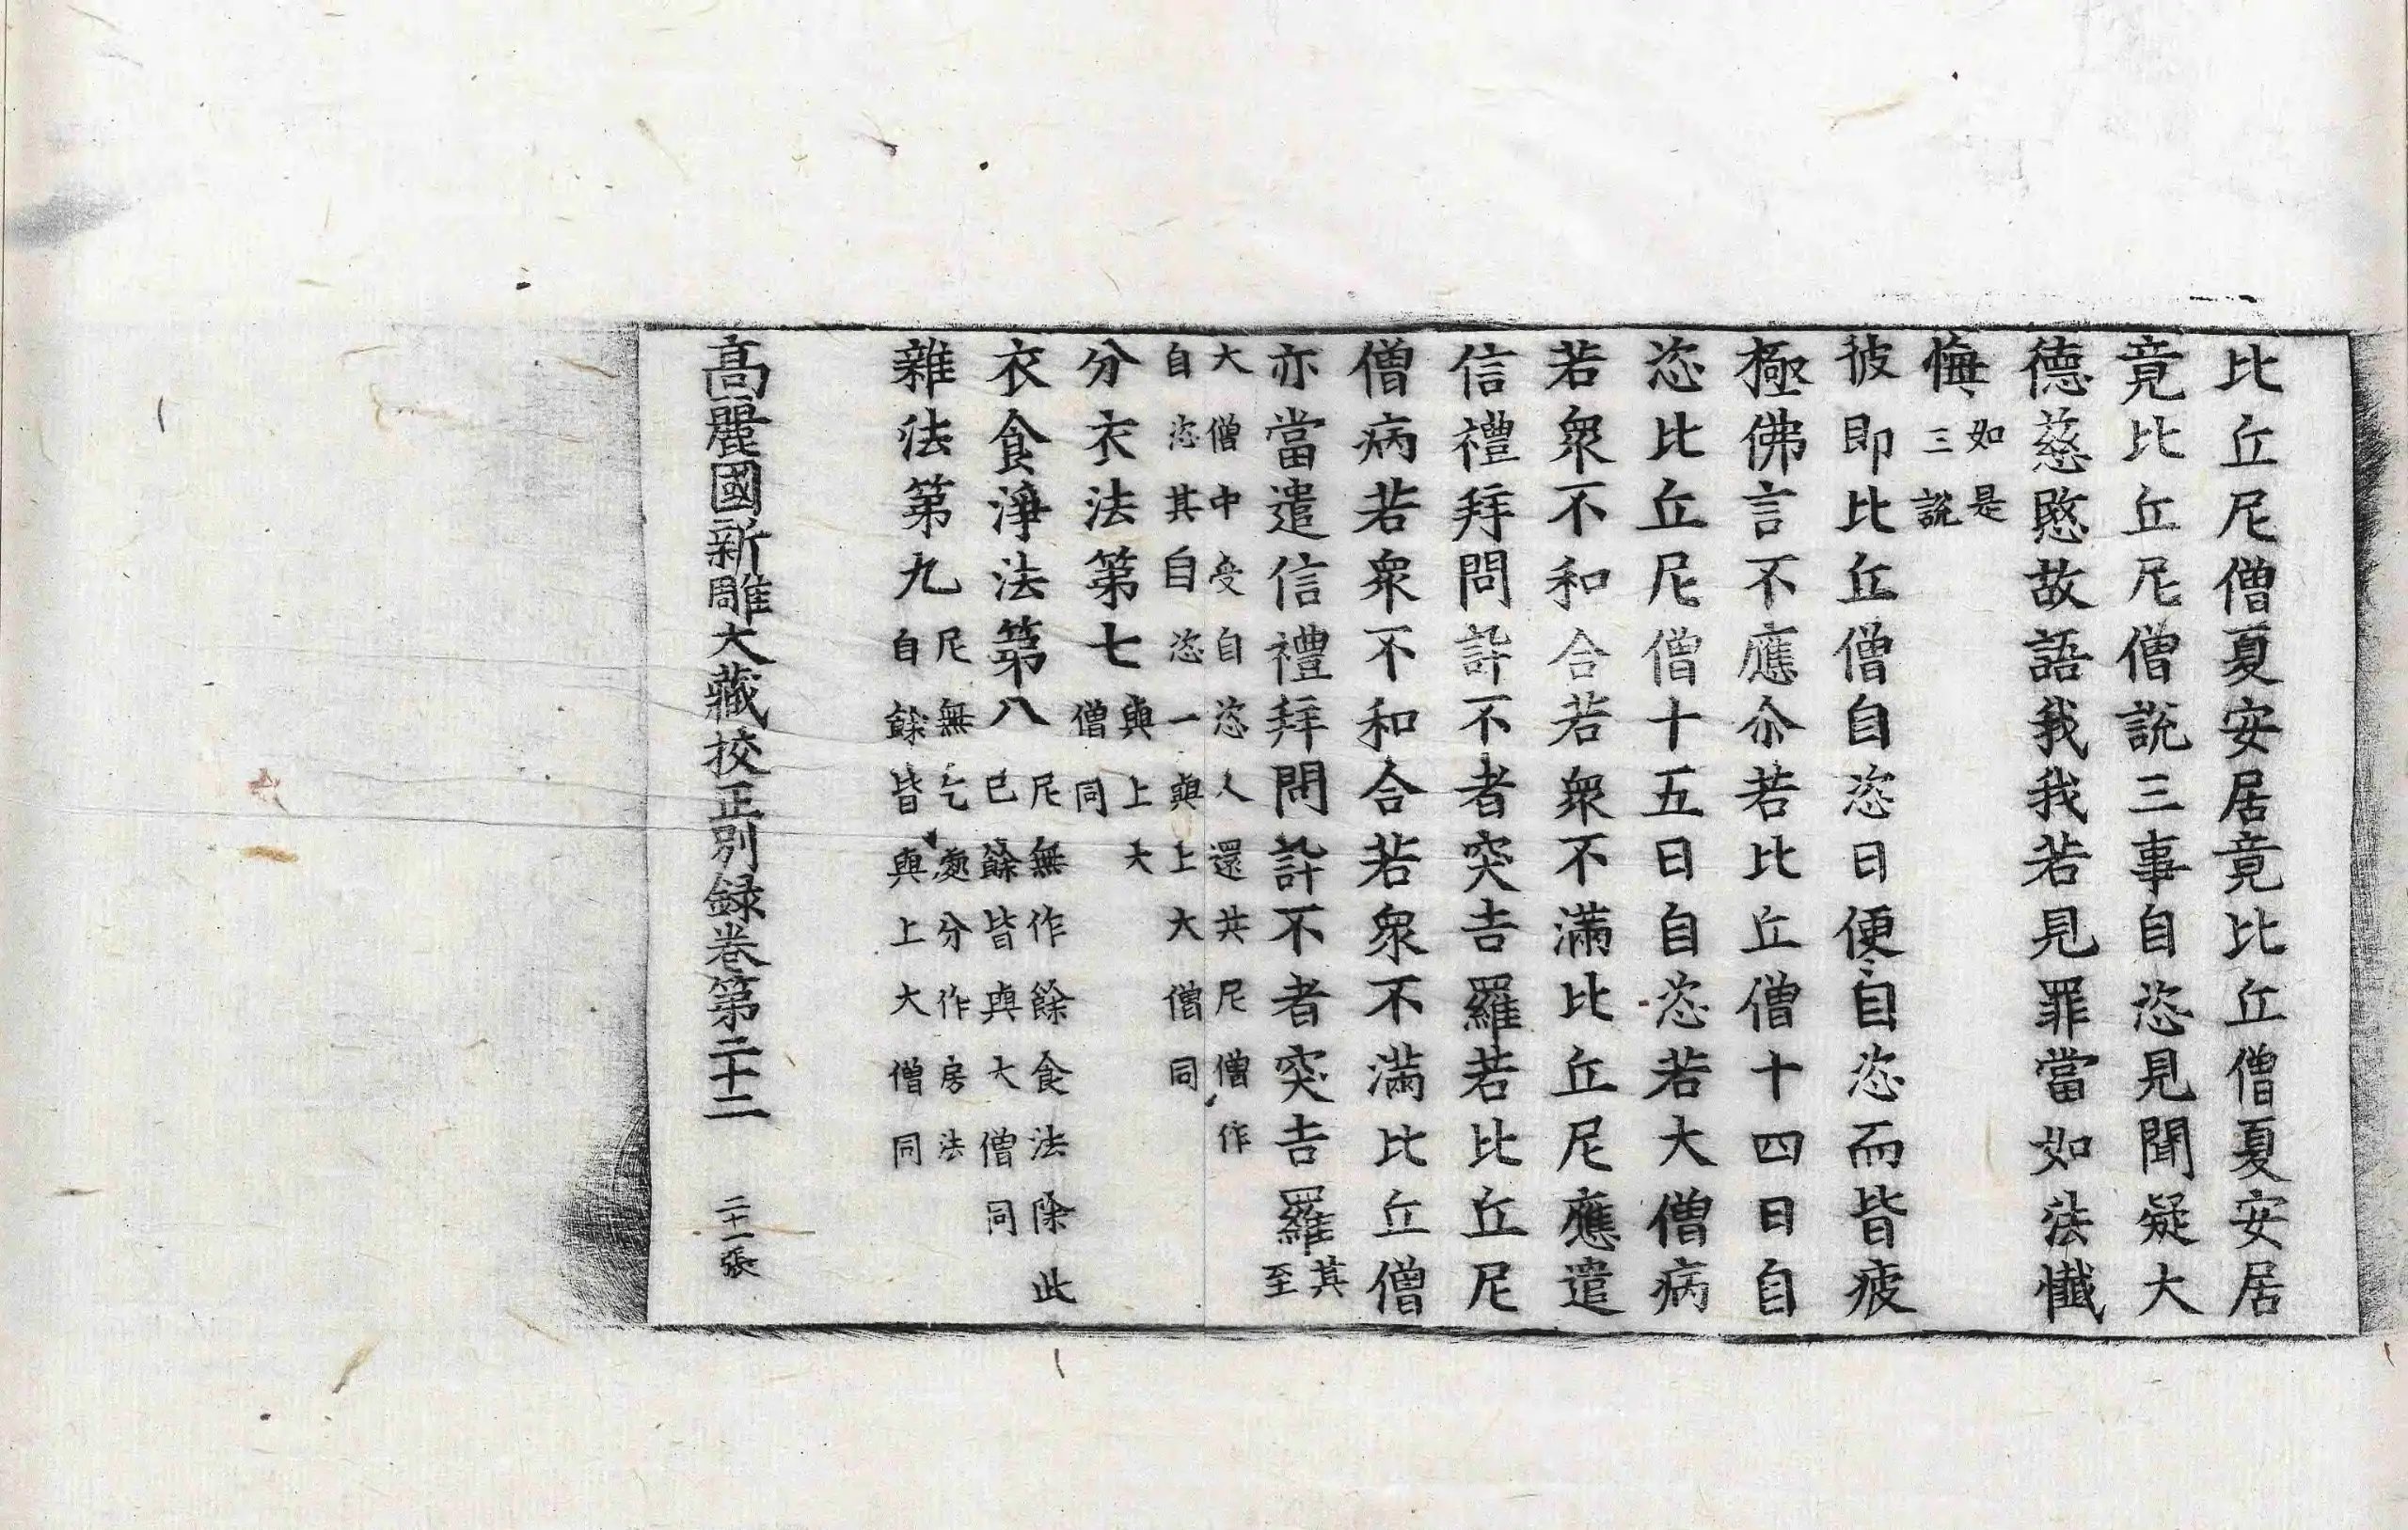 比丘尼僧夏安居竟比丘僧夏安居
竟比丘尼僧說三事自恣見聞疑大
德慈愍故語我我若見罪當如法懺
悔如是三說
彼即比丘僧自恣日便自恣而皆疲
極佛言不應尒若比丘僧十四日自
恣比丘尼僧十五日自恣若大僧病
若衆不和合若衆不滿比丘尼應遣
信禮拜問訃不者突吉羅若比丘尼
僧病若衆不和合若衆不滿比丘僧
亦當遣信禮拜問訃不者突吉羅其至
大僧中受自恣人還共尼僧作
自恣其自恣一與上大僧同
分衣法第七與上大僧同
衣食淨法第八尼無作餘食法除此已餘皆與大僧同
雜法第九尼無乞處分作房法自餘皆與上大僧同
高麗國新雕大藏校正別録卷第二十二 二十一張